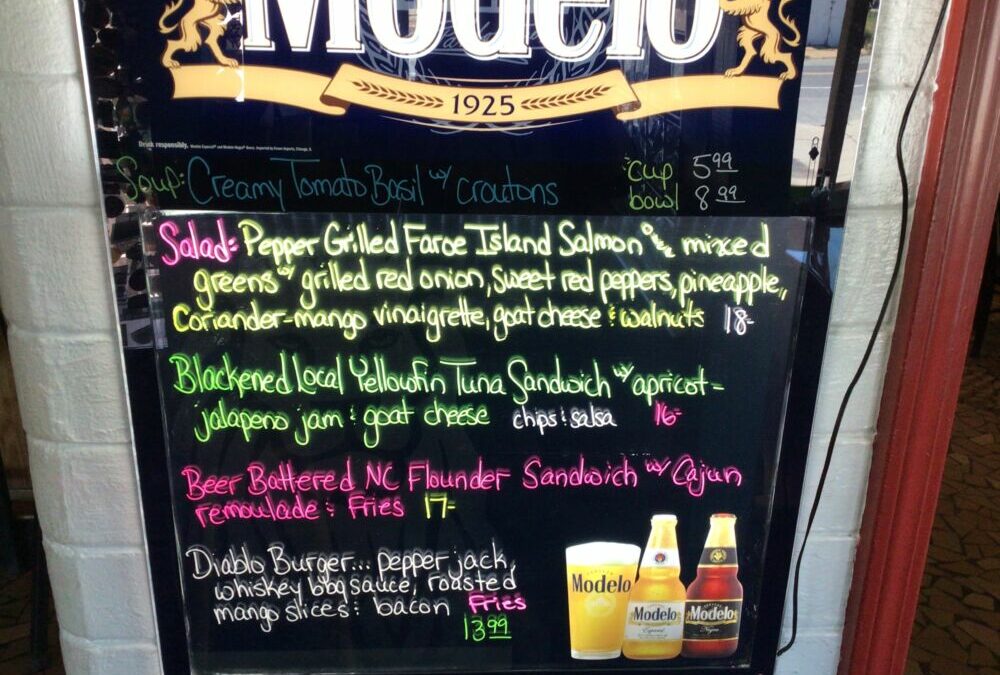 Modelo
1925
Drink responsibly.
Soup: Creamy Tomato Basil w/ croutons cup 5.99
bowl 8.99
Salad: Pepper Grilled Faroe Island Salmon o/ mixed
greens w/ grilled red onion, sweet red peppers, pineapple,
Coriander-mango vinaigrette, goat cheese & walnuts 18-
Blackened Local Yellowfin Tuna Sandwich w/ apricot-
jalapeno jam & goat cheese chips & salsa 16-
Beer Battered NC Flounder Sandwich w/ Cajun
remoulade & Fries 17-
Diablo Burger... pepper jack,
whiskey bbq sauce, roasted
mango slices & bacon Fries
13.99
Modelo
Modelo
Especial
Modelo
Negra